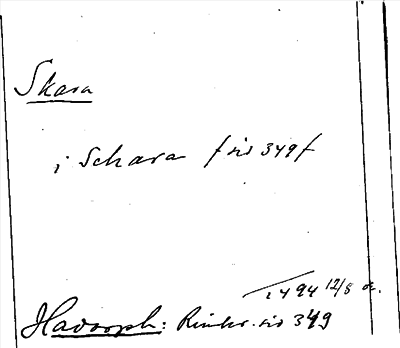 Skara
i Schara f sid 349 f
1494 12/8 or.
Hadorph: Rimkr. sid 349